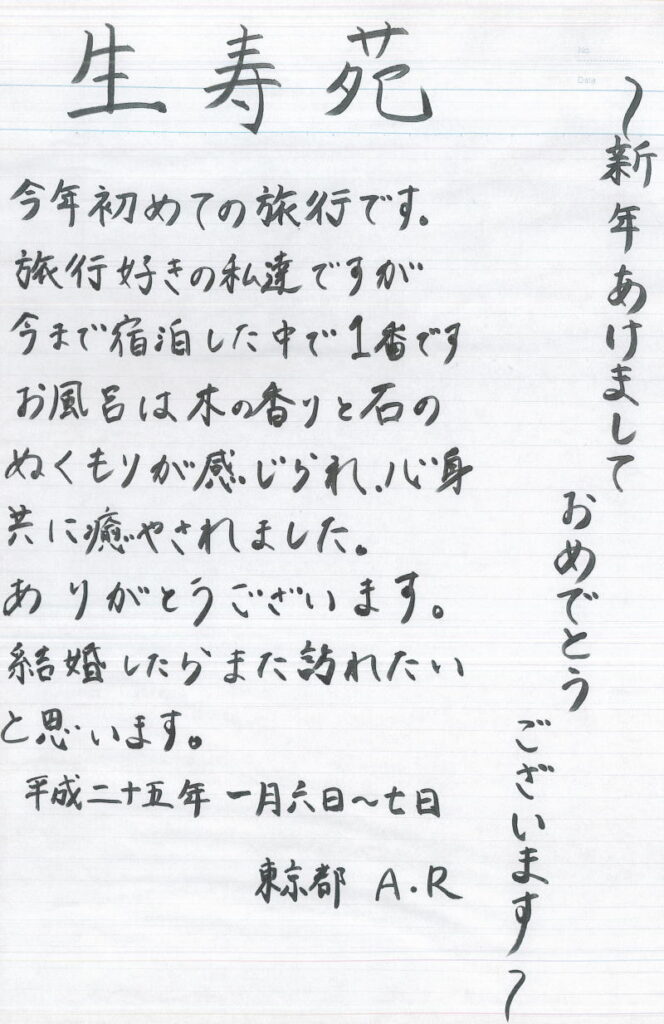 生寿苑
~新年あけまして
おめでとう
ございます~
今年初めての旅行です。
旅行好きの私達ですが
今まで宿泊した中で1番です
お風呂は木の香りと石の
ぬくもりが感じられ、心身
共に癒やされました。
ありがとうございます。
結婚したらまた訪れたい
と思います。
平成二十五年 一月六日~七日
東京都 A.R
No.
Date